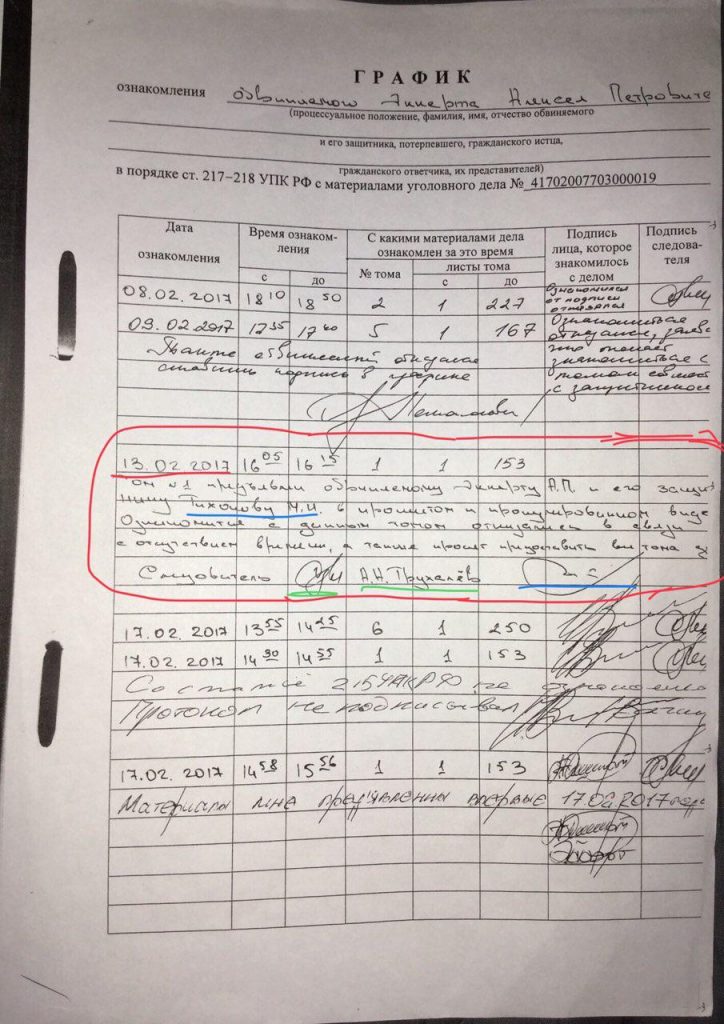 ГРАФИК
ознакомления обвиняемого Эккерта Алексея Петровича
(процессуальное положение, фамилия, имя, отчество обвиняемого
и его защитника, потерпевшего, гражданского истца,
гражданского ответчика, их представителей)
в порядке ст. 217–218 УПК РФ с материалами уголовного дела № 41702007703000019
Дата ознакомления Время ознаком-ления С какими материалами дела ознакомлен за это время Подпись лица, которое знакомилось с делом Подпись следова-теля
с до № тома листы тома
с до
08.02.2017 18 10 18 50 2 1 227 ознакомился от подписи отказался
09.02.2017 17 35 17 40 5 1 167 Ознакомиться отказался,
Также обвиняемый отказался знакомиться с
ставить подпись в графике томом
с защитником
13.02.2017 16 05 16 15 1 1 153
том №1 предъявлен обвиняемому Эккерту А.П. и его защит
нику Тихонову М.И. в прошитом и пронумерованном виде
Ознакомится с данным томом отказались в связи
с отсутствием времени, а также просят предоставить тома
Следователь А.Н. Трухалёв
17.02.2017 13 55 14 25 6 1 250
17.02.2017 14 30 14 55 1 1 153
Со статьёй 215 УПК РФ не ознакомлен
Протокол не подписывал
17.02.2017 14 58 15 56 1 1 153
Материалы мне предъявленны впервые 17.02.2017 года